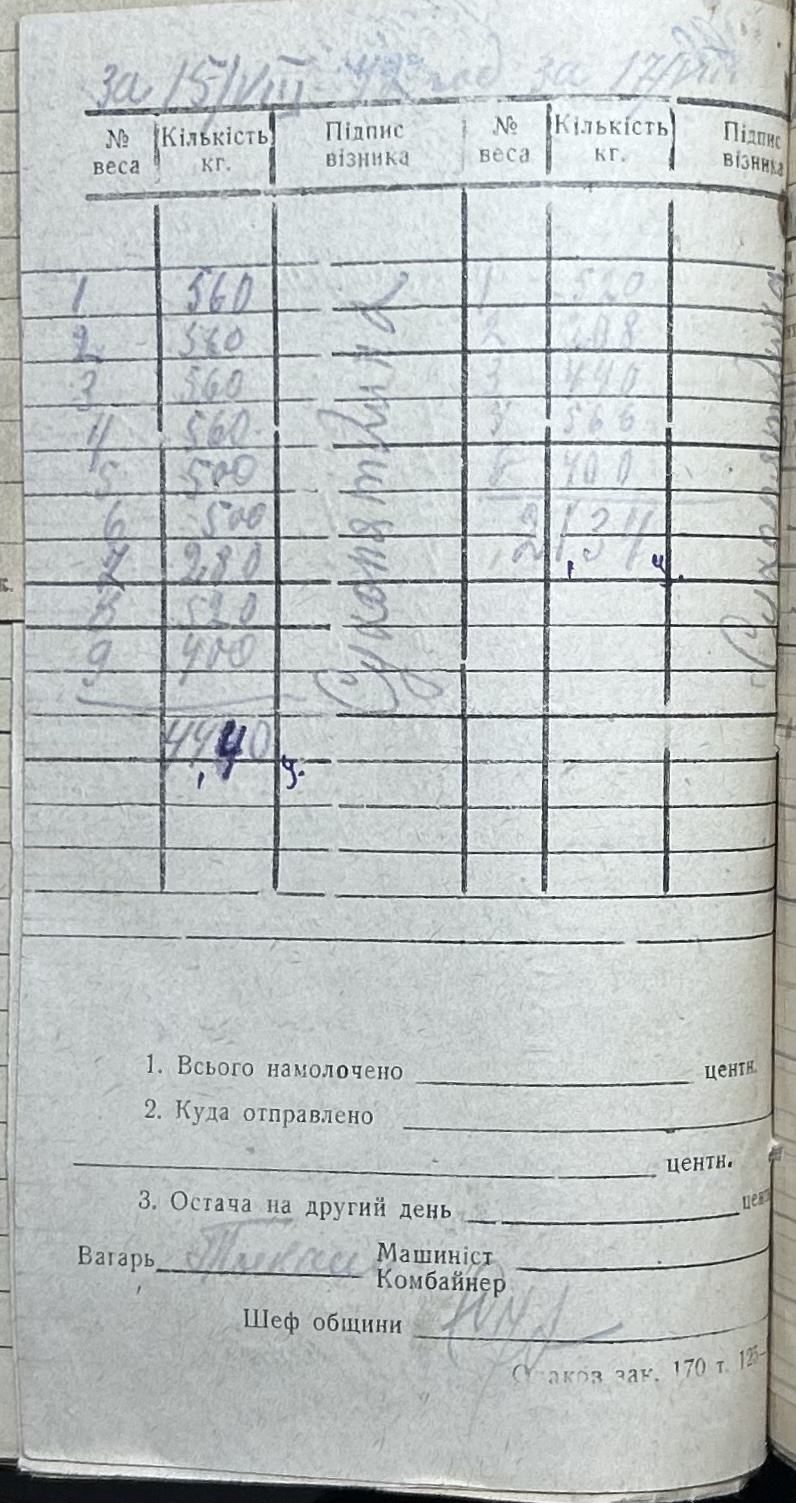 за 15/VIII 42 год за 17/VIII
№ веса Кількість кг. Підпис візника № веса Кількість кг. Підпис візника
1 560 1 520
2 560 2 208
3 560 3 440
4 560 4 566
5 500 5 400
6 500 2134 ц.
7 280
8 520
9 400
4440 ц.
1. Всього намолочено центн.
2. Куда отправлено
центн.
3. Остача на другий день
Вагарь Машиніст
Комбайнер
Шеф общини
зак. 170 т. 125